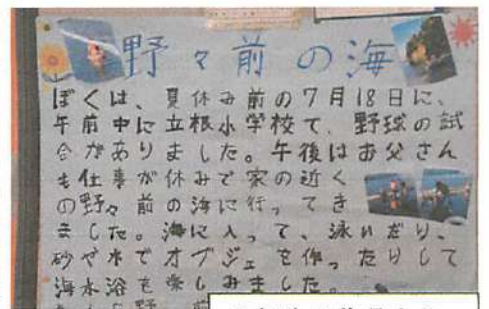 野々前の海
ぼくは、夏休み前の7月18日に、
午前中に立根小学校で、野球の試
合がありました。午後はお父さん
も仕事が休みで家の近く
の野々前の海に行ってき
ました。海に入って、泳いだり、
砂や水でオブジェを作ったりして
海水浴を楽しみました。